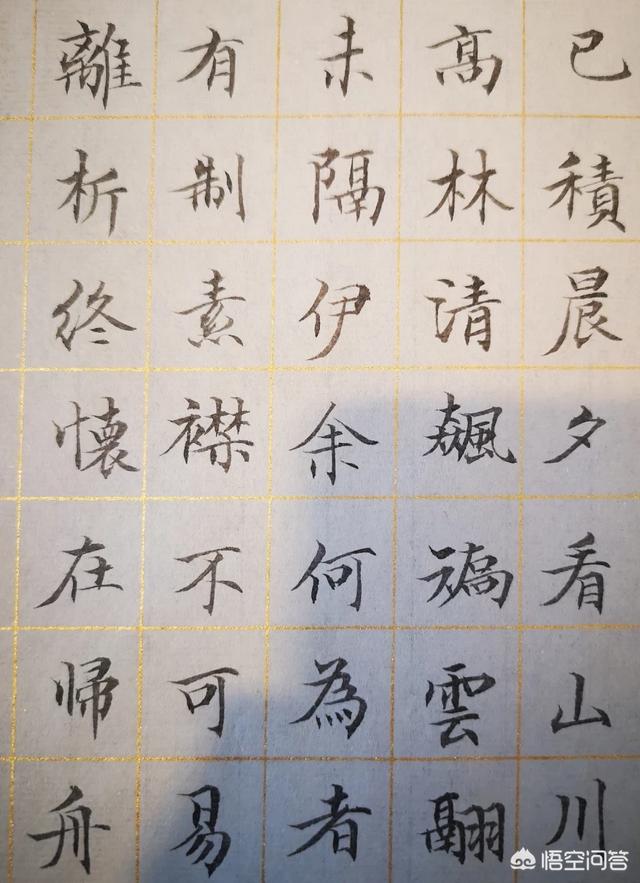 已積晨夕看山川
高林清飆矯雲翮
未隔伊余何為者
有制素襟不可易
離析終懷在帰舟
悟空问答